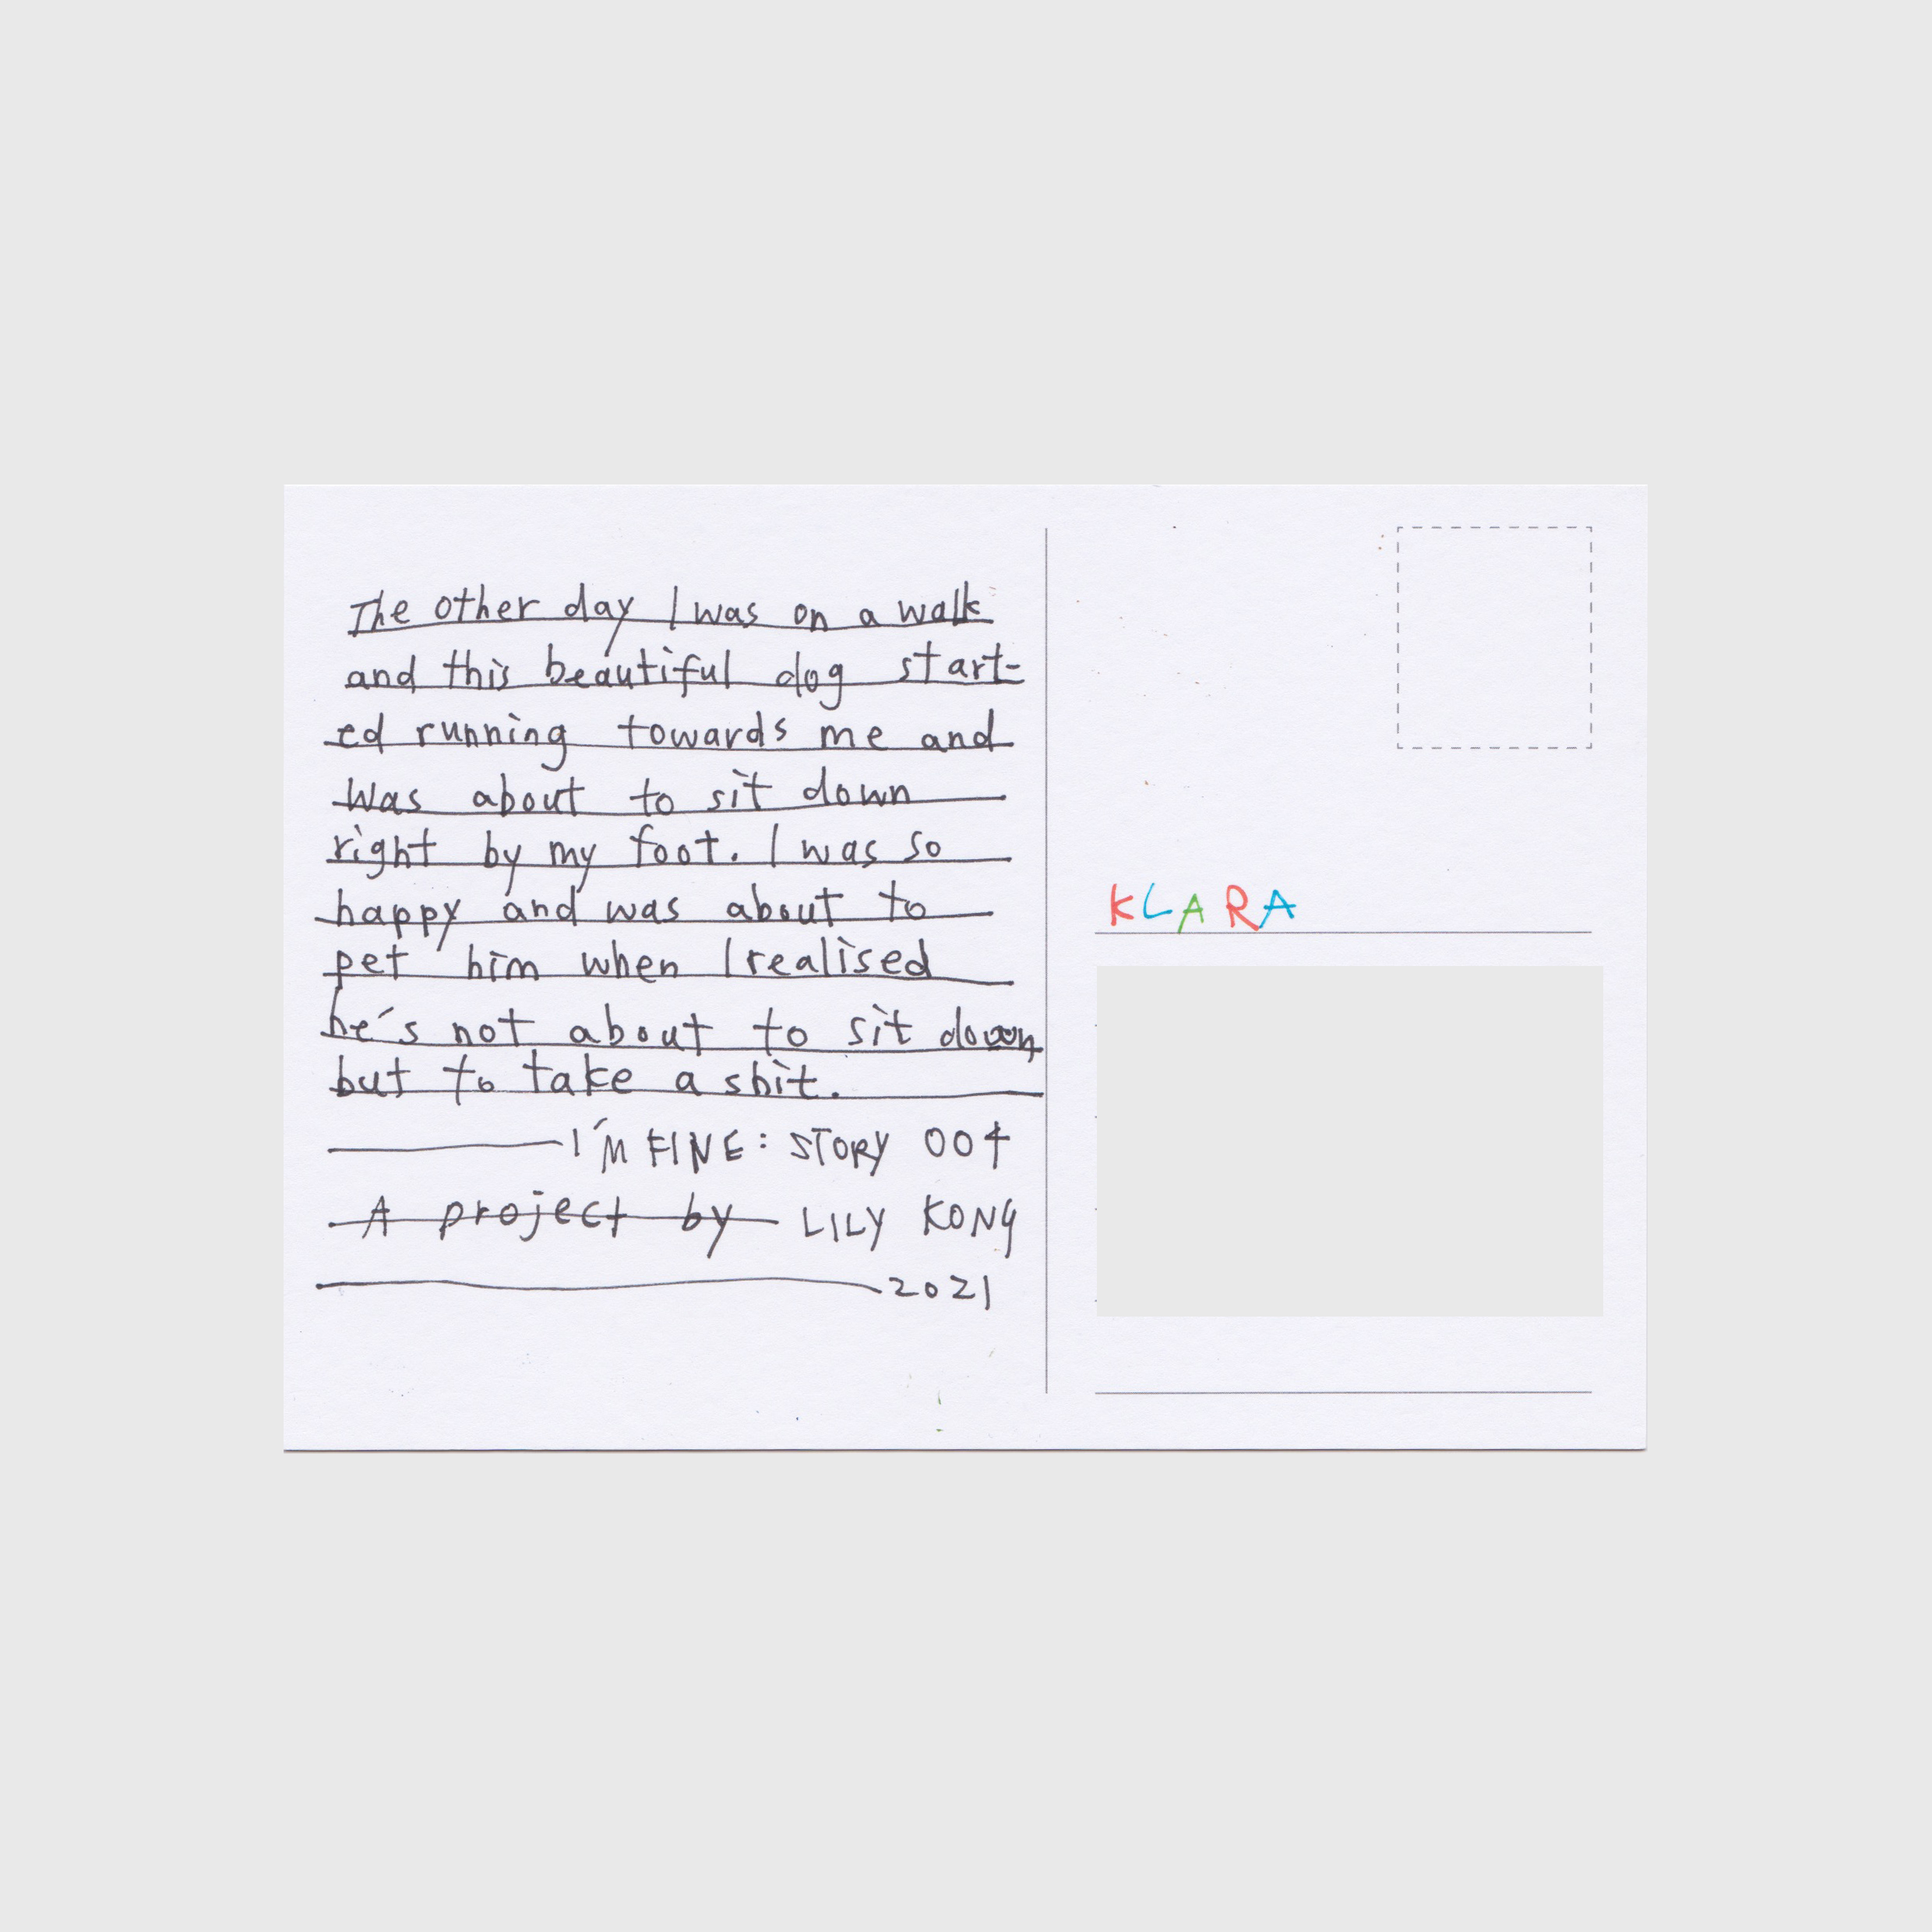 The other day I was on a walk
and this beautiful dog start-
ed running towards me and
was about to sit down
right by my foot. I was so
happy and was about to
pet him when I realised
he's not about to sit down
but to take a shit.
I'M FINE: STORY 004
A project by LILY KONG
2021
KLARA